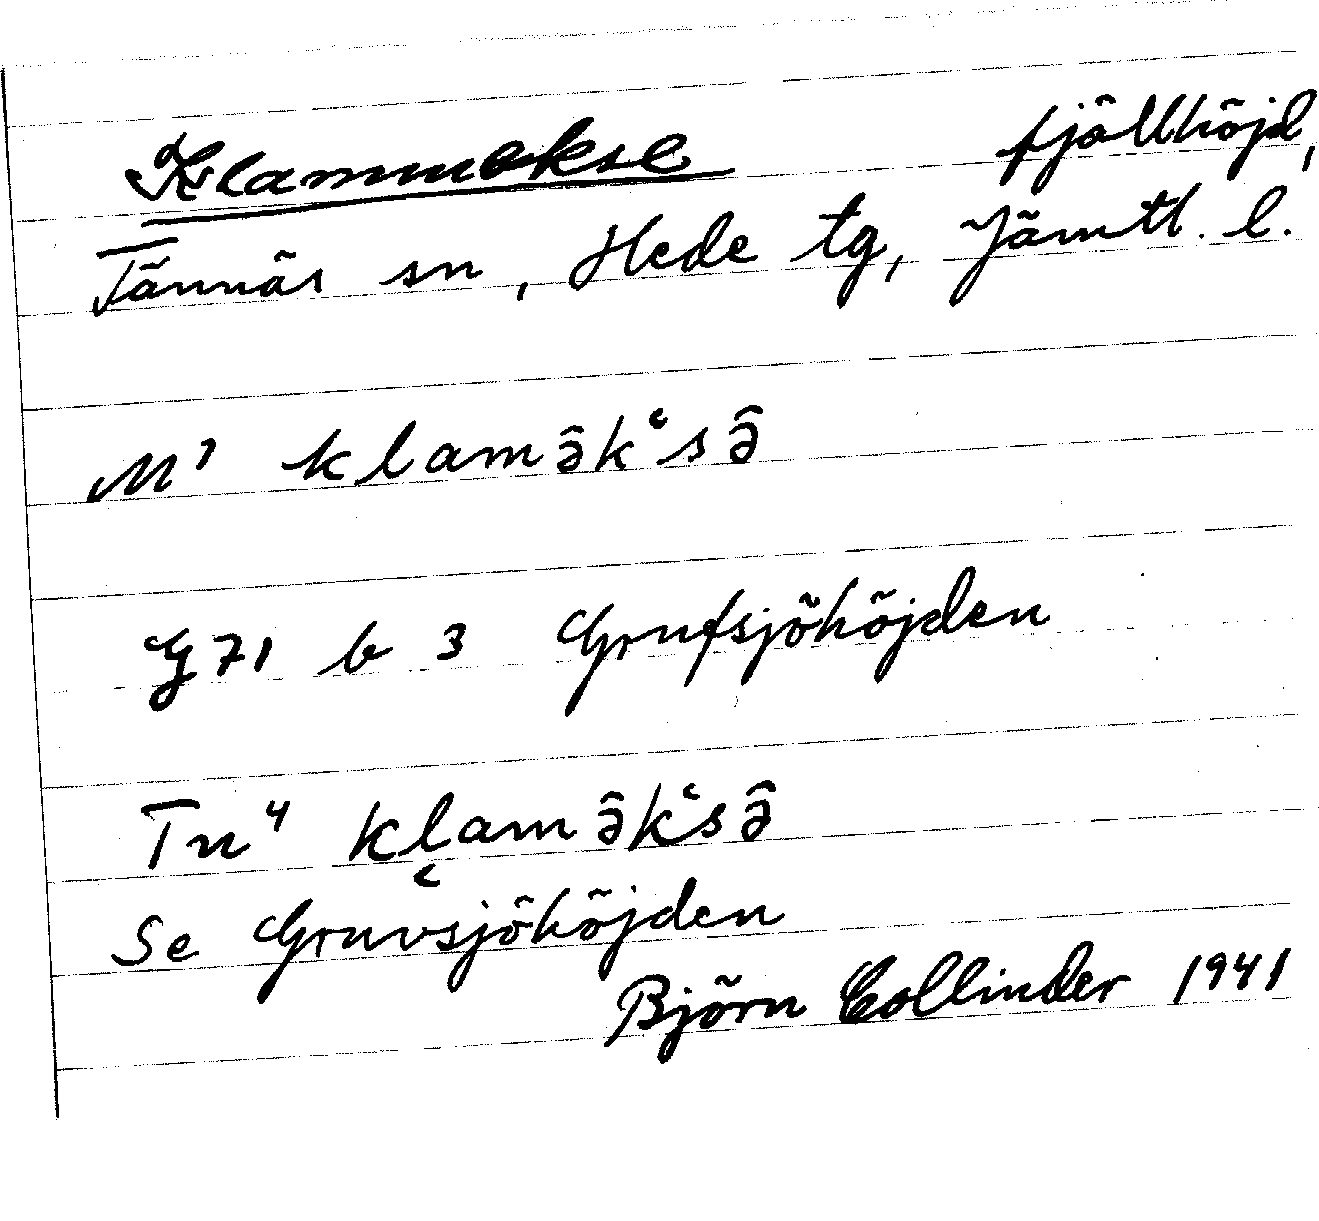 Klammekse fjällhöjd,
Tännäs sn, Hede tg, Jämtl. l.
M¹ klamə̂kʿsə̂
G 71 b 3 Grufsjöhöjden
Tn⁴ kl̜amə̂kʿsə̂
Se Gruvsjöhöjden
Björn Collinder 1941